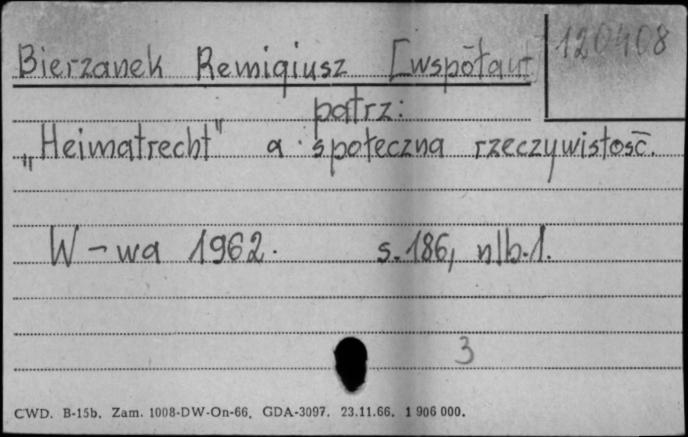 120408
Bierzanek Remigiusz [współaut
patrz:
„Heimatrecht" a społeczna rzeczywistość.
W-wa 1962. s.186, nlb.1.
3
CWD. B-15b. Zam. 1008-DW-On-66. GDA-3097. 23.11.66. 1 906 000.